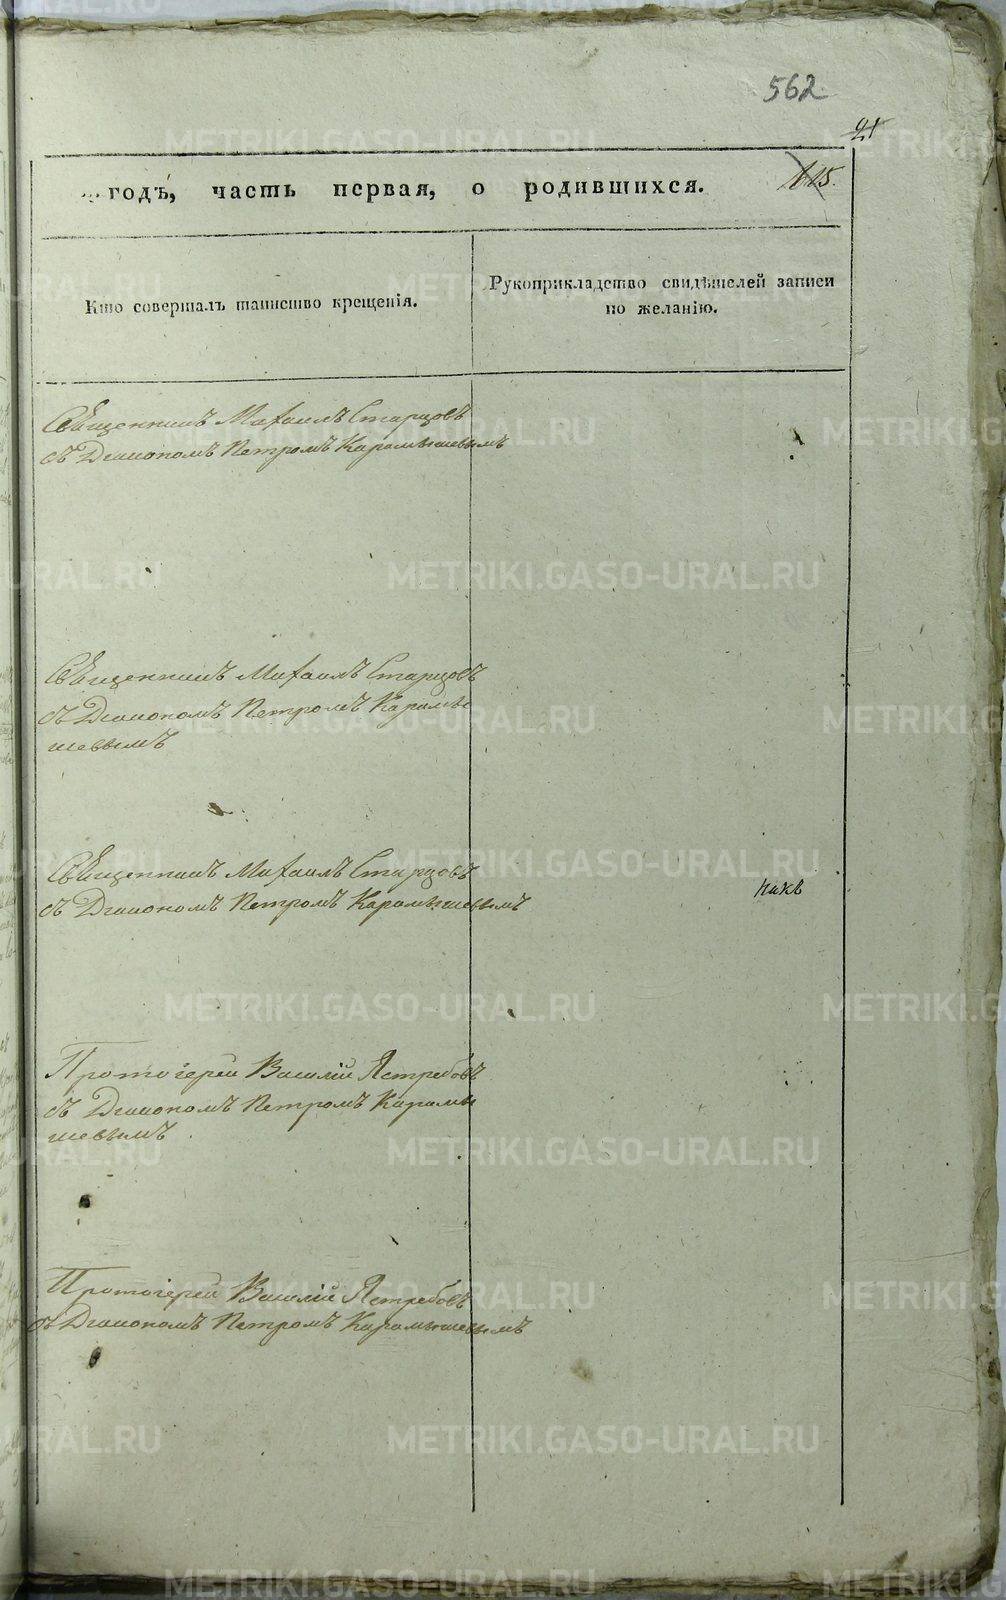 562
21
годъ, часть первая, о родившихся.
115.
Кто совершалъ таинство крещенія.
Рукоприкладство свидѣтелей записи
по желанію.
Священникъ Михаилъ Старцовъ
съ Діакономъ Петромъ Карамышевымъ
Священникъ Михаилъ Старцовъ
съ Діакономъ Петромъ Карамы
шевымъ
Священникъ Михаилъ Старцовъ
съ Діакономъ Петромъ Карамышевымъ
Протоіерей Василій Ястребовъ
съ Діакономъ Петромъ Карамы
шевымъ
Протоіерей Василій Ястребовъ
съ Діакономъ Петромъ Карамышевымъ
METRIKI.GASO-URAL.RU